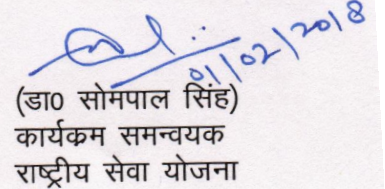 01/02/2018
(डा0 सोमपाल सिंह)
कार्यक्रम समन्वयक
राष्ट्रीय सेवा योजना